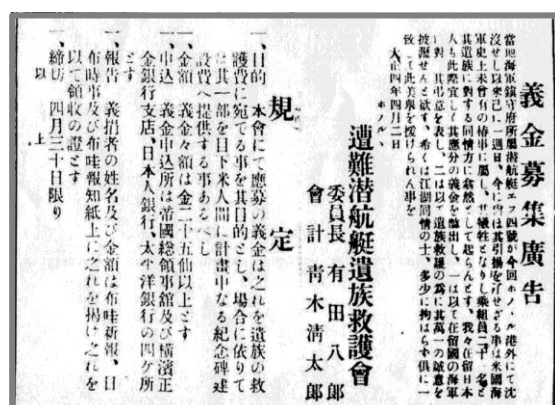 義金募集廣告
當地海軍鎭守府所屬潜航艇エフ四號が今回ホノルル港外にて沈
沒せし以來已に一週日、今に尚ほ其引揚を了せざる事は米國海
軍史上未曾有の椿事に屬し、其犧牲となりし乘組員二十一名と
其遺族に對する同情方に翕然として起らんとす、我々在留日本
人も此際宜しく其應分の義金を醵出し、一は以て在留國の海軍
に對し其弔意を表し、二は以て遺族救護の爲に其萬一の誠意を
披瀝せんと欲す、希くは江湖同情の士、多少に拘はらず倶に一
致して此美擧を援けられん事を
大正四年四月二日
ホノルル
遭難潜航艇遺族救護會
委員長 有田八郎
會計 靑木淸太郎
規定
一、目的 本會にて應募の義金は之れを遺族の救
護費に宛てる事を其目的とし、場合に依りて
は其一部を目下米人間に計畫中なる紀念碑建
設費へ提供する事あるべし
一、金額 義金々額は金二十五仙以上とす
一、申込 義金申込所は帝國總領事館及び橫濱正
金銀行支店、日本人銀行、太平洋銀行の四ケ所
とす
一、報告 義捐者の姓名及び金額は布哇新報、日
布時事及び布哇報知紙上に之れを揭げ之れを
以て領收の證とす
一、締切 四月三十日限り
以上